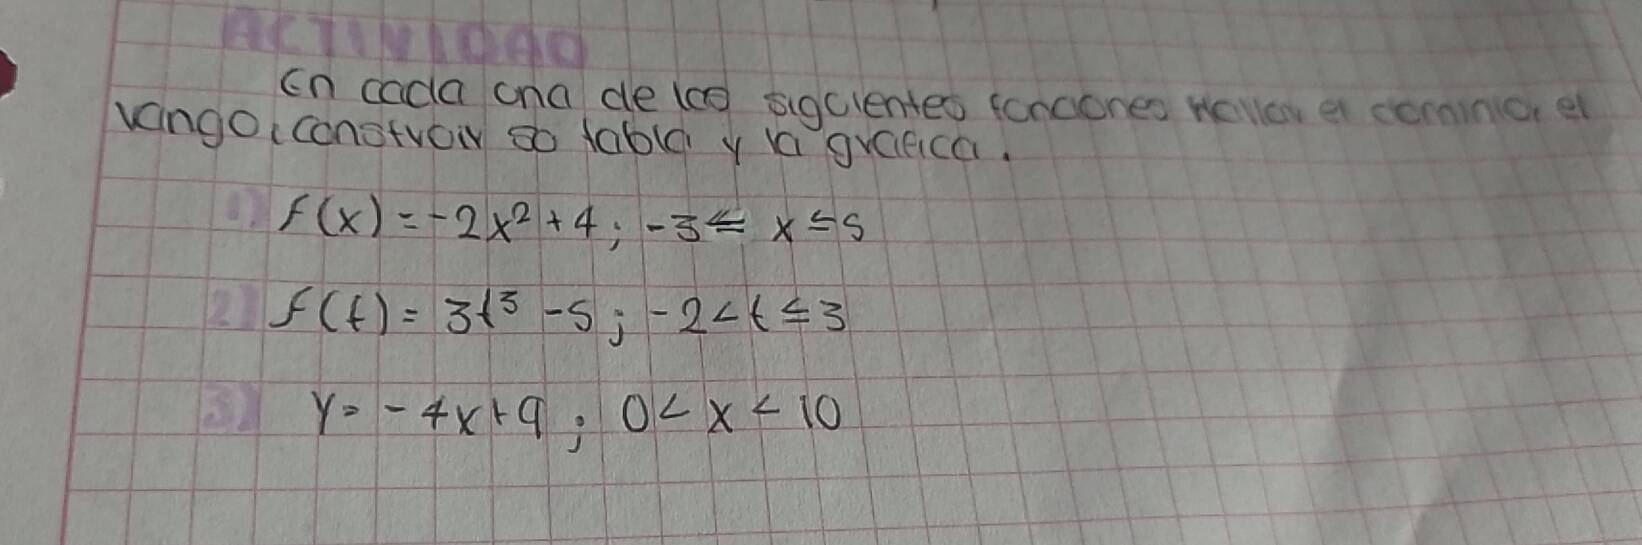 ACTIVIDAD
En cada una de las siguientes funciones Hallar el dominio, el
rango, construir su tabla y la grafica.
1) f(x) = -2x² + 4 ; -3 ≤ x ≤ 5
2) f(t) = 3t³ - 5 ; -2 < t ≤ 3
3) y = -4x + 9 ; 0 < x < 10